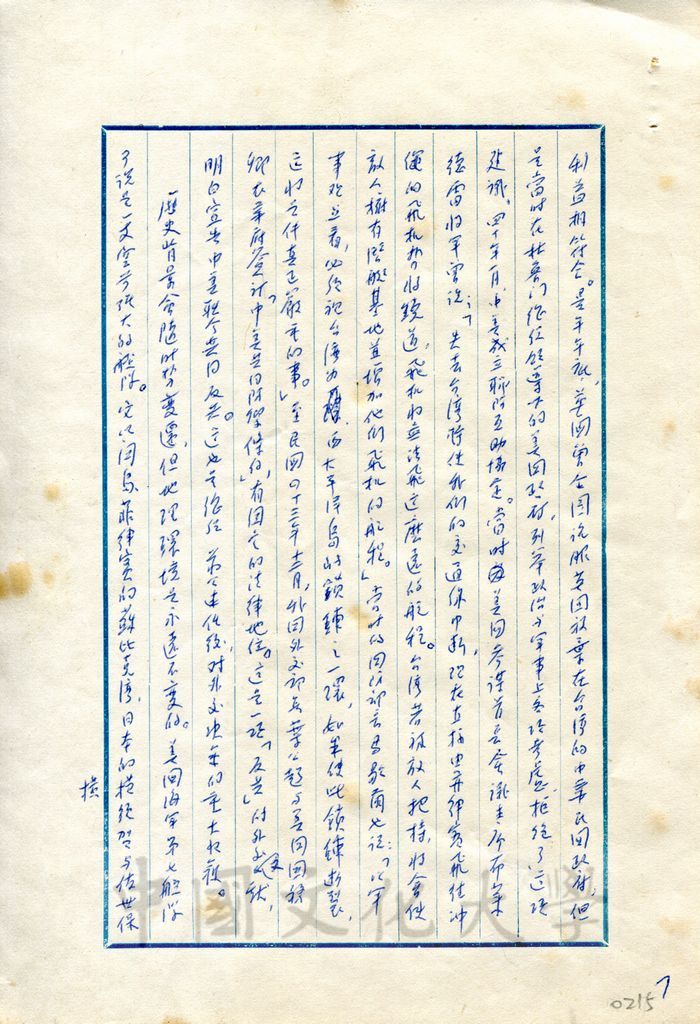 利益相符合。是年年底，英國曾企圖說服美國放棄在台灣的中華民國政府，但
是當時在杜魯門總統領導下的美國政府，列舉政治與軍事上各項考慮，拒絕了這項
建議。四十年一月，中美成立聯防互助協定。當時美國參謀首長會議主席布萊
德雷將軍曾說：「失去台灣將使我們的交通線中斷，現在直接由菲律賓飛往沖
繩的飛機將繞道，飛機將無法飛這麼遠的航程。台灣若被敵人把持，將會使
敵人擁有潛艇基地並增加他們飛機的航程。」當時的國防部長馬歇爾也說：「從軍
事觀點看，必須視台灣為西太平洋島的鎖鍊之一環，如果使此鎖鍊斷裂，
這將是件真正嚴重的事。」至民國四十三年十二月，我國外交部長葉公超與美國國務
卿在華府簽訂「中美共同防禦條約」，有固定的法律地位。這是一項「反共」的外交文獻，
明白宣告中美聯合共同反共。這也是總統 蔣公遷台後，對外交決策的重大收穫。
歷史背景會隨時勢變遷，但地理環境是永遠不變的。美國海軍第七艦隊
可說是一支空前強大的艦隊。它以關島、菲律賓的蘇比克灣，日本的橫須賀與佐世保
橫
中國文化大學
0215
7